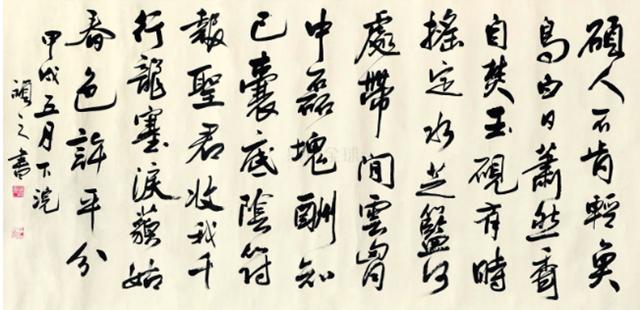 碩人不肯輕魚
鳥白日蕭然香
自焚玉硯有時
搖定水芝籃何
處帶間雲胷
中磊塊酬知
已囊底陰符
報聖君收我千
行龍塞淚藐姑
春色許平分
甲戌五月下浣
之書